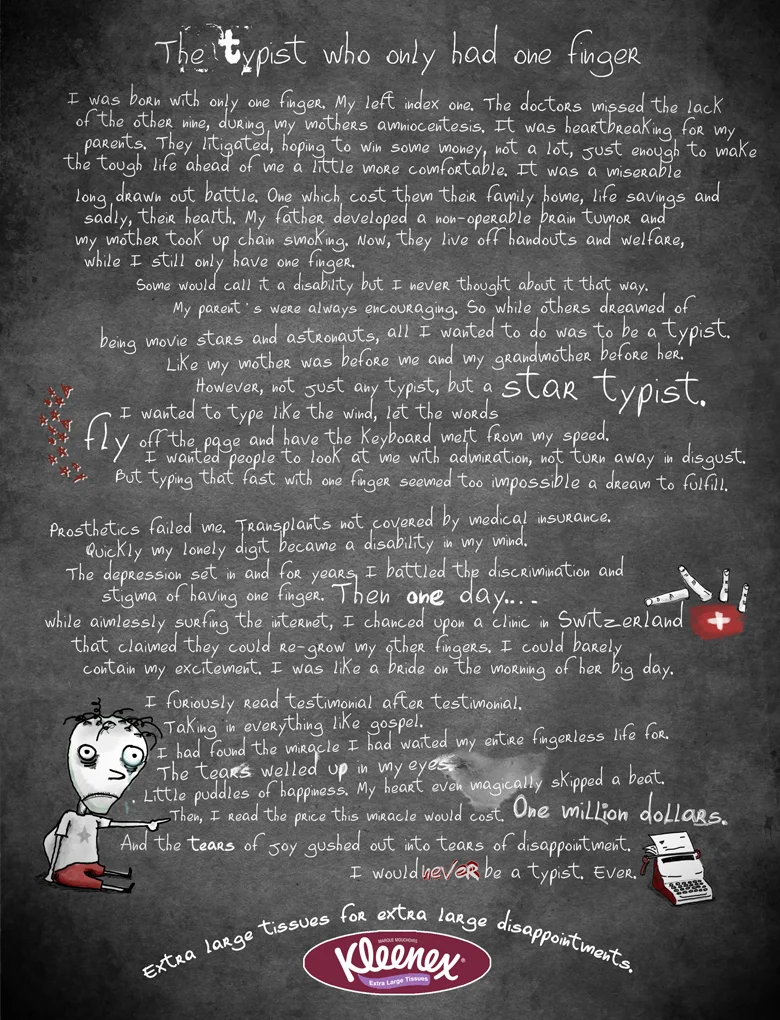 The typist who only had one finger
I was born with only one finger. My left index one. The doctors missed the lack
of the other nine, during my mothers amniocentesis. It was heartbreaking for my
parents. They litigated, hoping to win some money, not a lot, just enough to make
the tough life ahead of me a little more comfortable. It was a miserable
long drawn out battle. One which cost them their family home, life savings and
sadly, their health. My father developed a non-operable brain tumor and
my mother took up chain smoking. Now, they live off handouts and welfare,
while I still only have one finger.
Some would call it a disability but I never thought about it that way.
My parent's were always encouraging. So while others dreamed of
being movie stars and astronauts, all I wanted to do was to be a typist.
Like my mother was before me and my grandmother before her.
However, not just any typist, but a star typist.
I wanted to type like the wind, let the words
fly off the page and have the Keyboard melt from my speed.
I wanted people to look at me with admiration, not turn away in disgust.
But typing that fast with one finger seemed too impossible a dream to fulfill.
Prosthetics failed me. Transplants not covered by medical insurance.
Quickly my lonely digit became a disability in my mind.
The depression set in and for years, I battled the discrimination and
stigma of having one finger. Then one day....
while aimlessly surfing the internet, I chanced upon a clinic in Switzerland
that claimed they could re-grow my other fingers. I could barely
contain my excitement. I was like a bride on the morning of her big day.
I furiously read testimonial after testimonial.
Taking in everything like gospel.
I had found the miracle I had waited my entire fingerless life for.
The tears welled up in my eyes.
Little puddles of happiness. My heart even magically skipped a beat.
Then, I read the price this miracle would cost. One million dollars.
And the tears of joy gushed out into tears of disappointment.
I would never be a typist. Ever.
Extra large tissues for extra large disappointments.
MARQUE MOUCHOIRS
Kleenex®
Extra Large Tissues